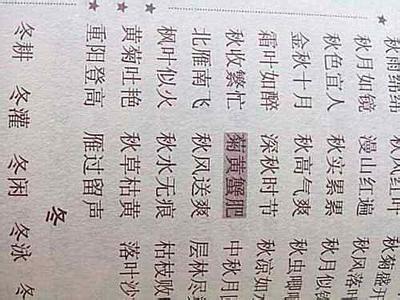 秋雨绵绵 秋风红叶 秋菊盛开
秋月如镜 漫山红遍 秋风落叶
秋色宜人 秋实累累 秋月似镜
金秋十月 秋高气爽 秋虫唧唧
霜叶如醉 深秋时节 秋凉如
秋收繁忙 菊黄蟹肥 中秋月圆
北雁南飞 秋风送爽 层林尽染
枫叶似火 秋水无痕 枯枝败
黄菊吐艳 秋草枯黄 落叶沙
重阳登高 雁过留声
冬
冬耕 冬灌 冬困 冬泳 冬